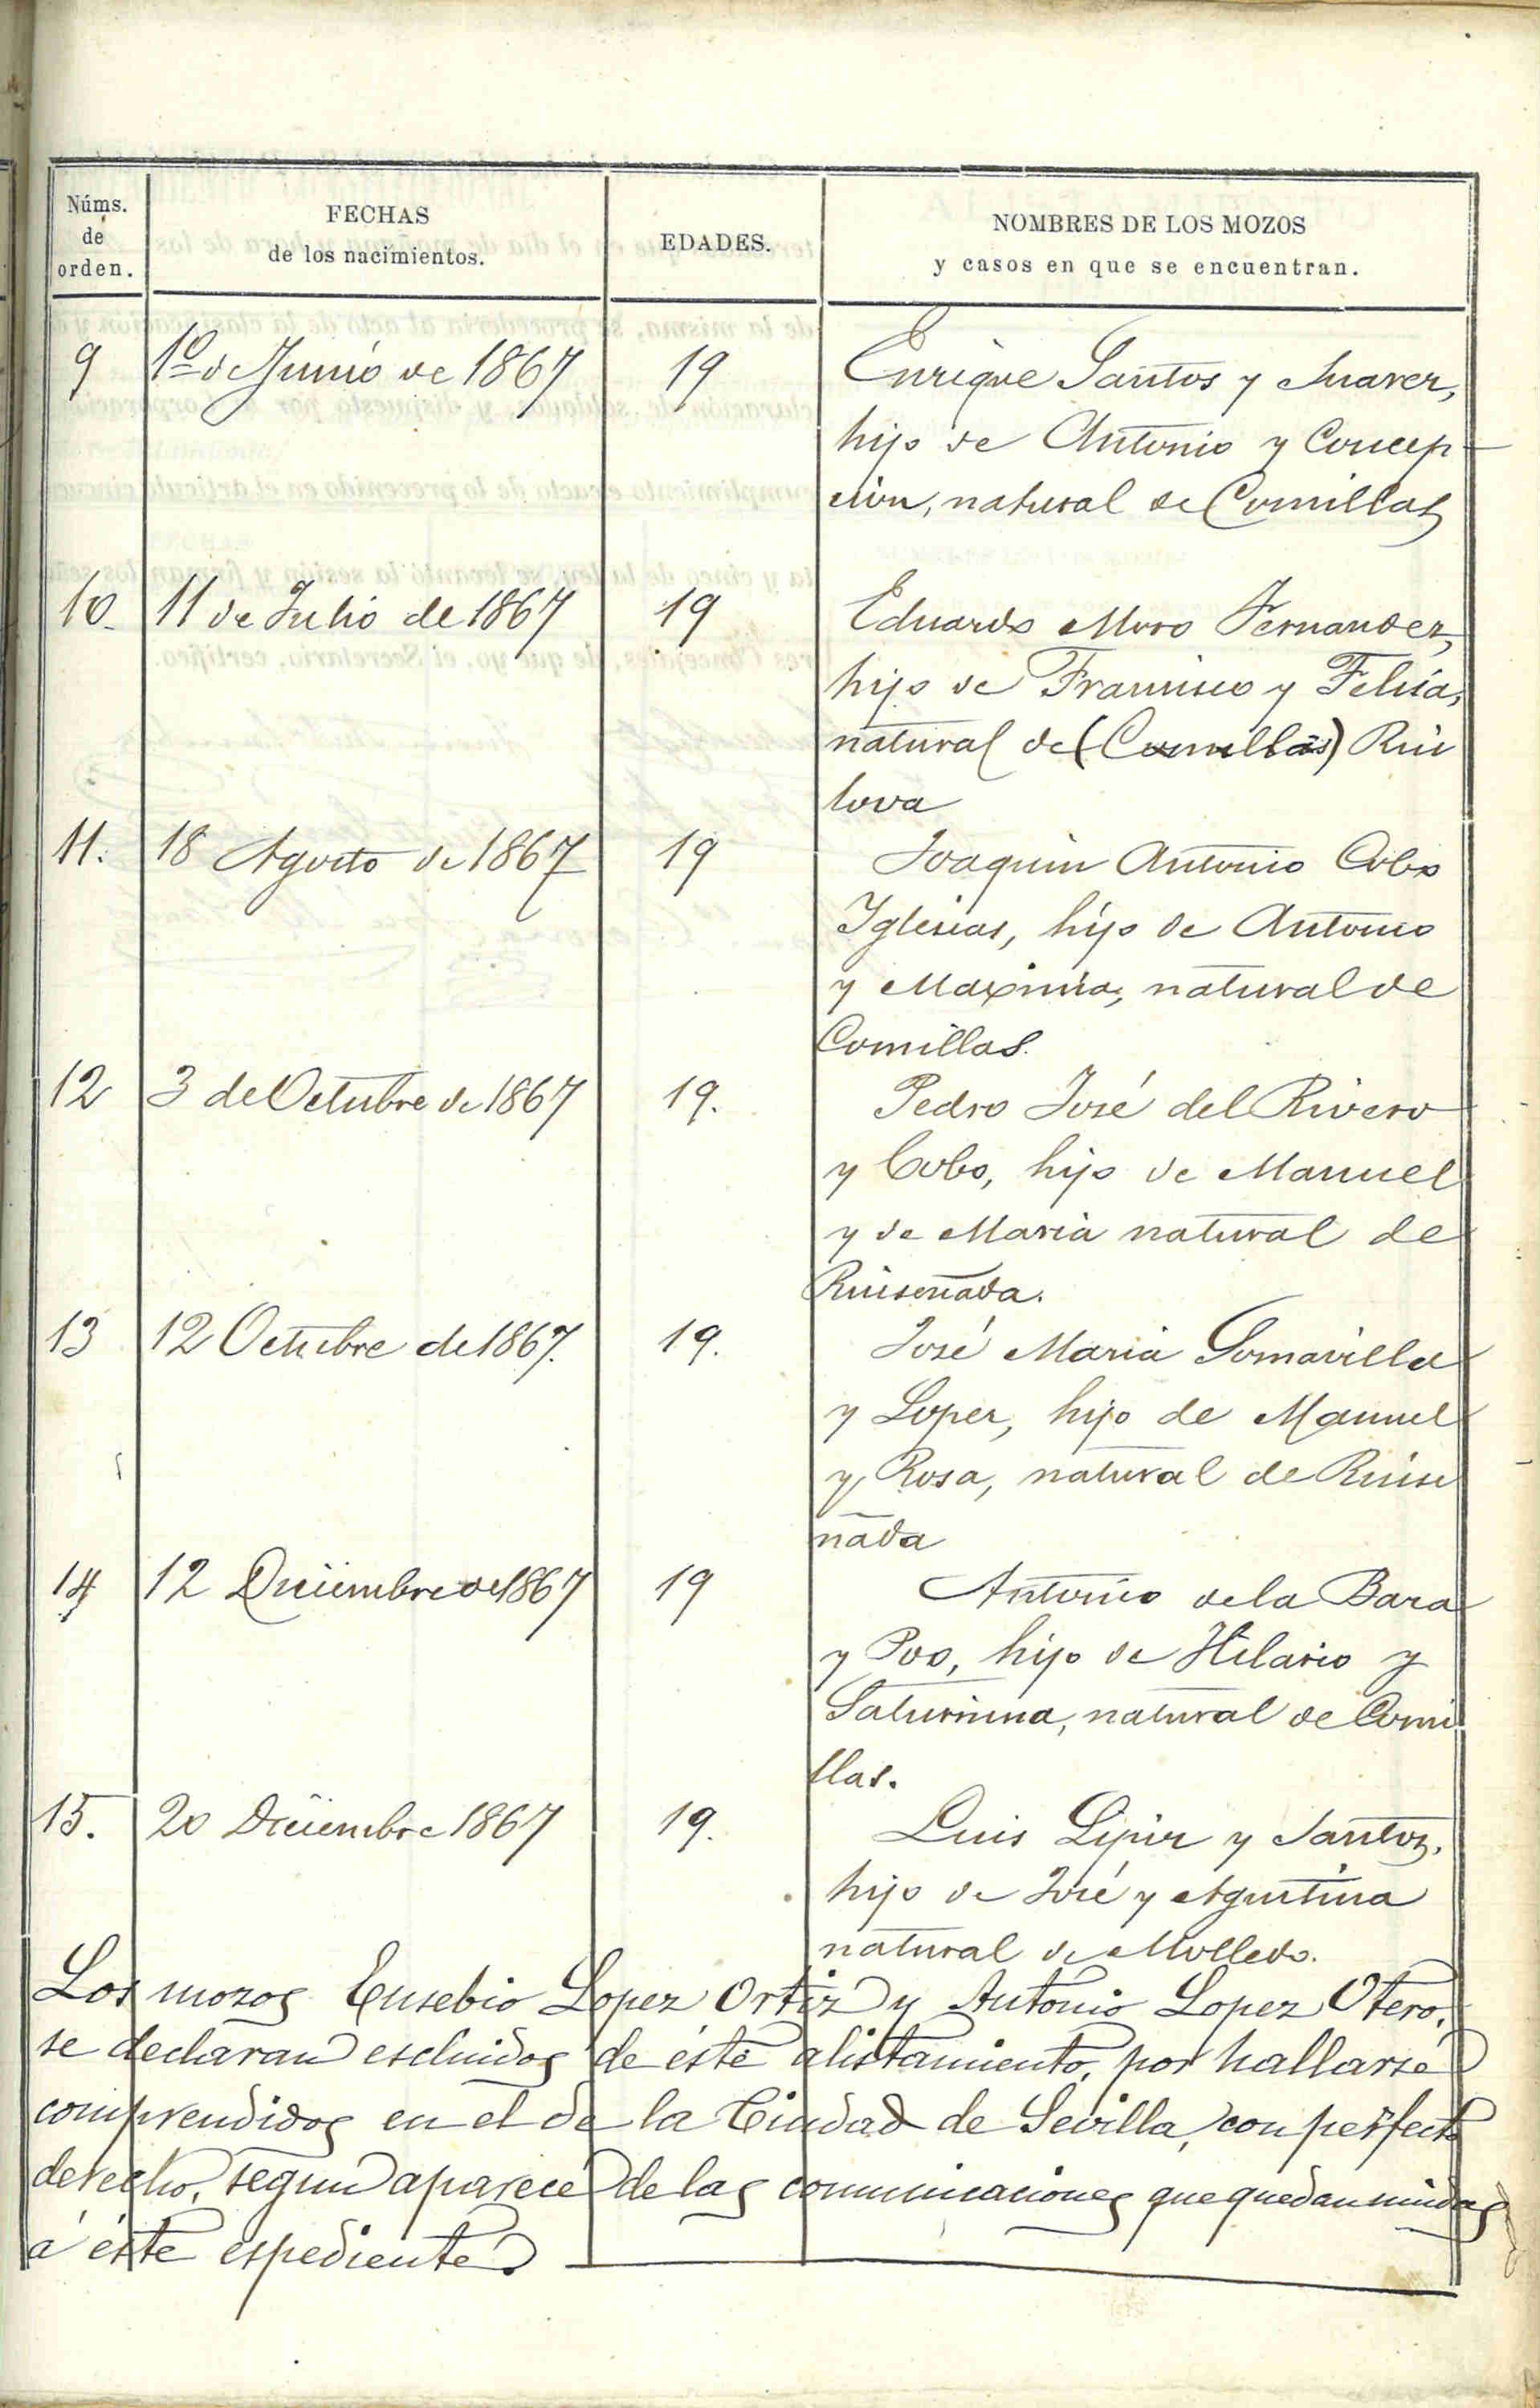 Núms. de orden.
FECHAS de los nacimientos.
EDADES.
NOMBRES DE LOS MOZOS y casos en que se encuentran.
9 1º de Junio de 1867 19 Enrique Santos y Suarez,
hijo de Antonio y Concep-
cion, natural de Comillas
10. 11 de Julio de 1867 19 Eduardo Moro Fernandez,
hijo de Francisco y Felisa,
natural de (Comillas) Rui
lova
11. 18 Agosto de 1867 19 Joaquin Antonio Cobo
Iglesias, hijo de Antonio
y Maxima, natural de
Comillas.
12 3 de Octubre de 1867 19. Pedro José del Rivero
y Cobo, hijo de Manuel
y de Maria natural de
Ruiseñada.
13 12 Octubre de 1867. 19. José Maria Somavilla
y Lopez, hijo de Manuel
y Rosa, natural de Ruise
ñada
14 12 Diciembre de 1867 19 Antonio de la Bara
y Poo, hijo de Hilario y
Saturnina, natural de Comi
llas.
15. 20 Diciembre 1867 19. Luis y Santos,
hijo de José y Agustina
natural de Molledo.
Los mozos Eusebio Lopez Ortiz y Antonio Lopez Otero,
se declaran escluidos de éste alistamiento, por hallarse
comprendidos en el de la Ciudad de Sevilla, con perfecto
derecho, segun aparece de las comunicaciones que quedan unidas
á éste espediente.